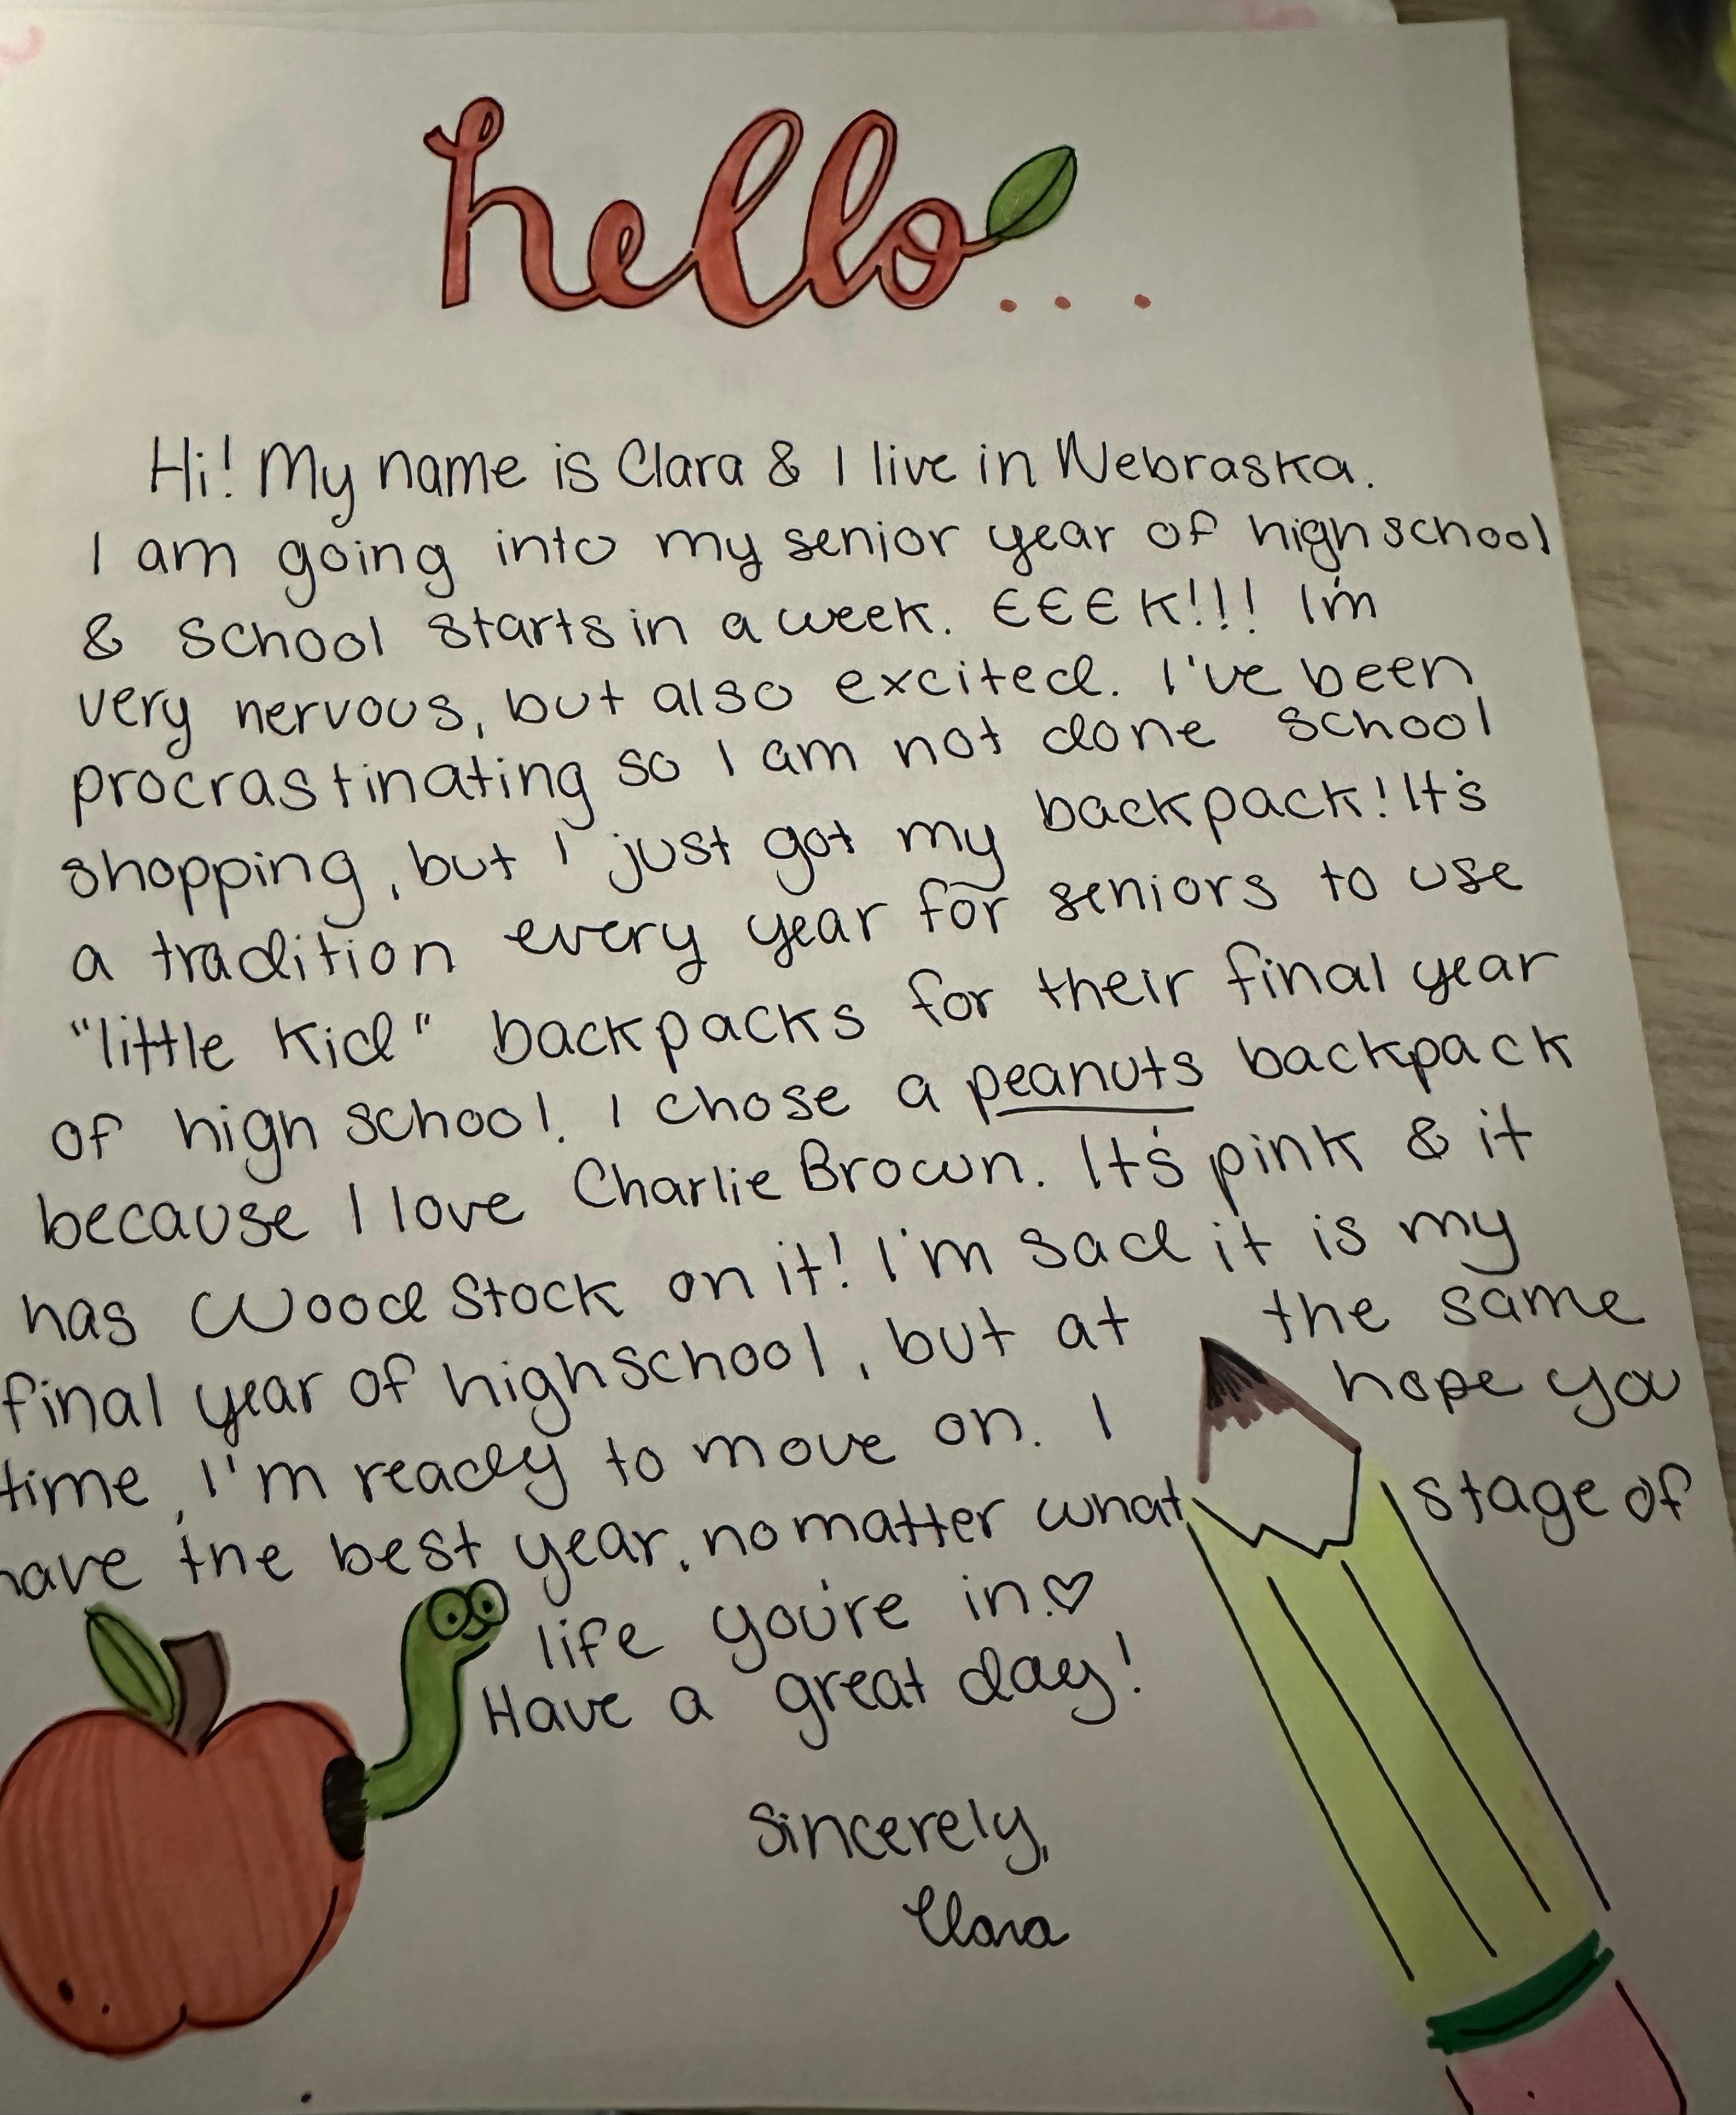 hello...
Hi! My name is Clara & I live in Nebraska.
I am going into my senior year of highschool
& school starts in a week. EEEK!!! I'm
very nervous, but also excited. I've been
procrastinating so I am not done school
shopping, but I just got my backpack! It's
a tradition every year for seniors to use
"little kid" backpacks for their final year
of high school. I chose a peanuts backpack
because I love Charlie Brown. It's pink & it
has Wood Stock on it! I'm sad it is my
final year of highschool, but at the same
time, I'm ready to move on. I hope you
have the best year, no matter what stage of
life you're in.♡
Have a great day!
Sincerely,
Clara